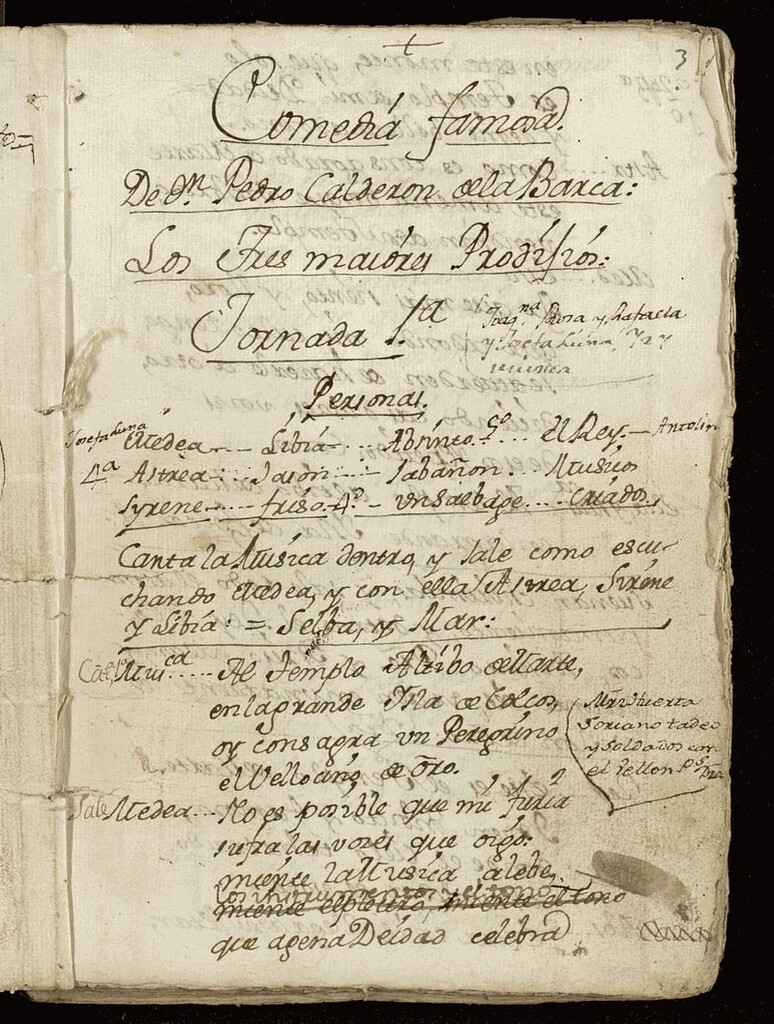 3
Comedia famosa.
De Dn. Pedro Calderon dela Barca:
Los Tres maiores Prodijios:
Jornada 1.a
Rosa y Rafaela
y Josefa Luna,
Personas.
Josefa Luna
Medea --- Libia --- Absinto --- el Rey. - Antolin
4a Astrea --- Jason --- Sabañon --- Musicos
Syrene --- friso --- un Salbage --- Criados
Canta la Musica dentro, y sale como escu-
chando Medea, y con ella Astrea, Sirene
y Libia: = Selba, y Mar:
Musica --- Al Templo Altibo de Marte,
en la grande Isla de Colcos,
oy consagra un Peregrino
el Vellocino de Oro.
Huerta
Soriano tadeo
y Soldados con
el Vellon
Sale Medea --- No es posible que mi furia
sufra las vozes que oigo:
miente la Musica alebe,
los instrumentos y el tono
miente el plectro, miente el tono
que agena Deidad celebra